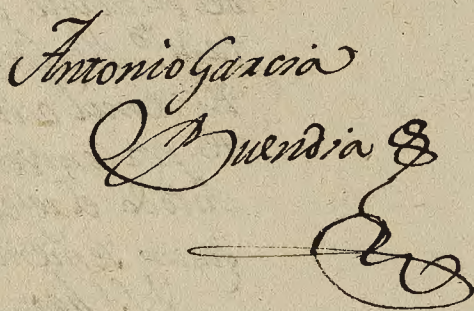 Antonio Garcia
Buendia